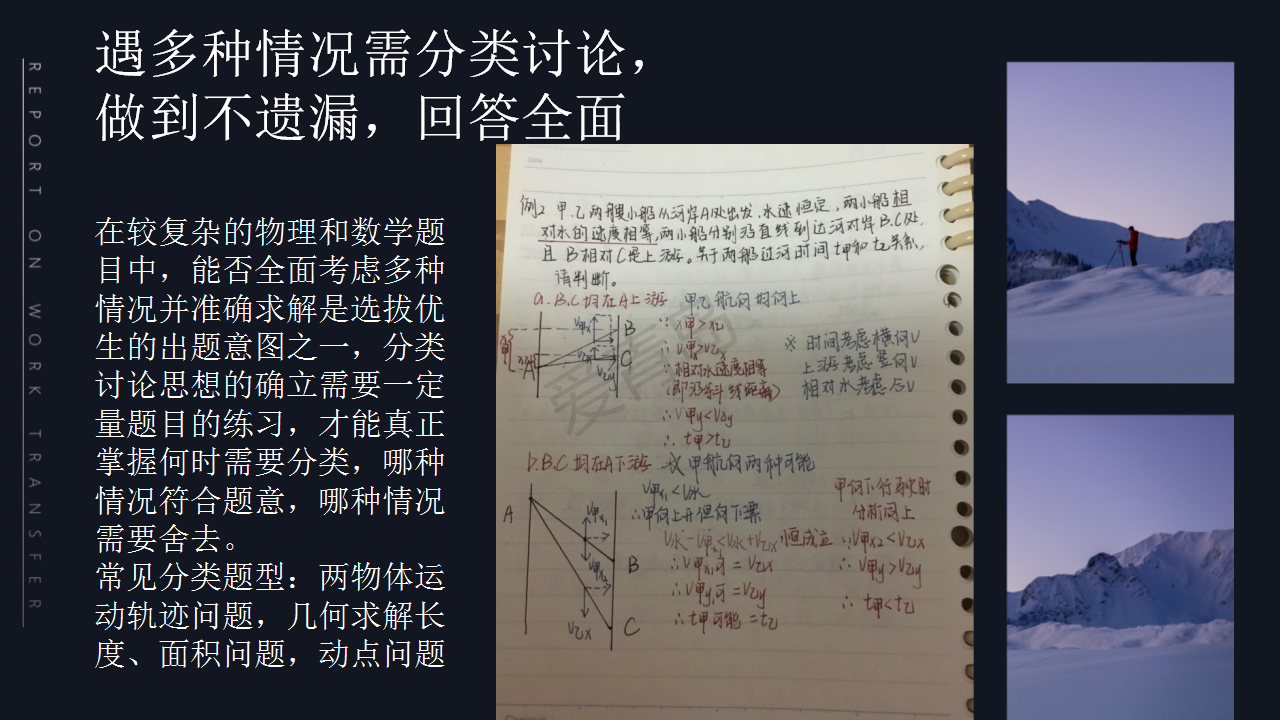 遇多种情况需分类讨论，
做到不遗漏，回答全面
REPORT ON WORK TRANSFER
在较复杂的物理和数学题
目中，能否全面考虑多种
情况并准确求解是选拔优
生的出题意图之一，分类
讨论思想的确立需要一定
量题目的练习，才能真正
掌握何时需要分类，哪种
情况符合题意，哪种情况
需要舍去。
常见分类题型：两物体运
动轨迹问题，几何求解长
度、面积问题，动点问题
例2 甲、乙两艘小船从河岸A处出发，水速恒定，两小船相
对水的速度相等，两小船分别沿直线到达河对岸B、C处，
且B相对C是上游。关于两船过河时间t甲和t乙关系，
请判断。
a. B、C均在A上游 甲乙航向均向上
B
C
A
V乙y
∵ x甲>x乙
∴ V甲x>V乙x
∵相对水速度相等
(即沿斜线距离)
∴V甲y<V乙y
∴ t甲>t乙
※ 时间考虑横向V
上游考虑竖向V
相对水考虑后V
b. B、C均在A下游 甲航向两种可能
A
V甲x1
V甲x2
B
V乙x
C
V甲x1<V水
∴甲向上开但向下漂
V水-V甲x1<V水+V乙x 恒成立
∴V甲x1可=V乙x
∴V甲y1可=V乙y
∴t甲可能=t乙
甲向下行驶时
分析同上
∴V甲x2<V乙x
∴ V甲y>V乙y
∴ t甲<t乙